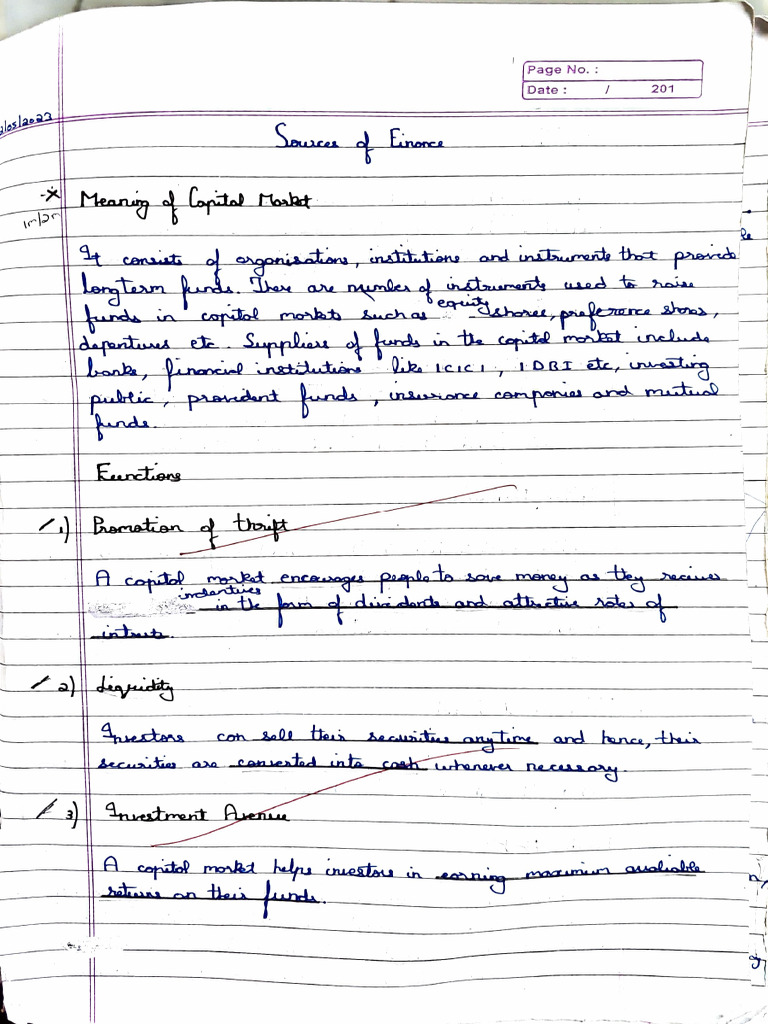 Page No. :
Date : / 201
/05/2022
Sources of Finance
Meaning of Capital Market
It consists of organisations, institutions and instruments that provide
longterm funds. There are number of instruments used to raise
funds in capital markets such as equity shares, preference shares,
depentures etc. Suppliers of funds in the capital market include
banks, financial institutions like ICICI, IDBI etc, investing
public, provident funds, insurance companies and mutual
funds.
Functions
1) Promotion of thrift
A capital market encourages people to save money as they receives
incentives in the form of dividents and attractive rates of
intrest.
2) Liquidity
Investors can sell their securities anytime and hence, their
securities are converted into cash whenever necessary.
3) Investment Avenue
A capital market helps investors in earning maximum avaliable
returns on their funds.